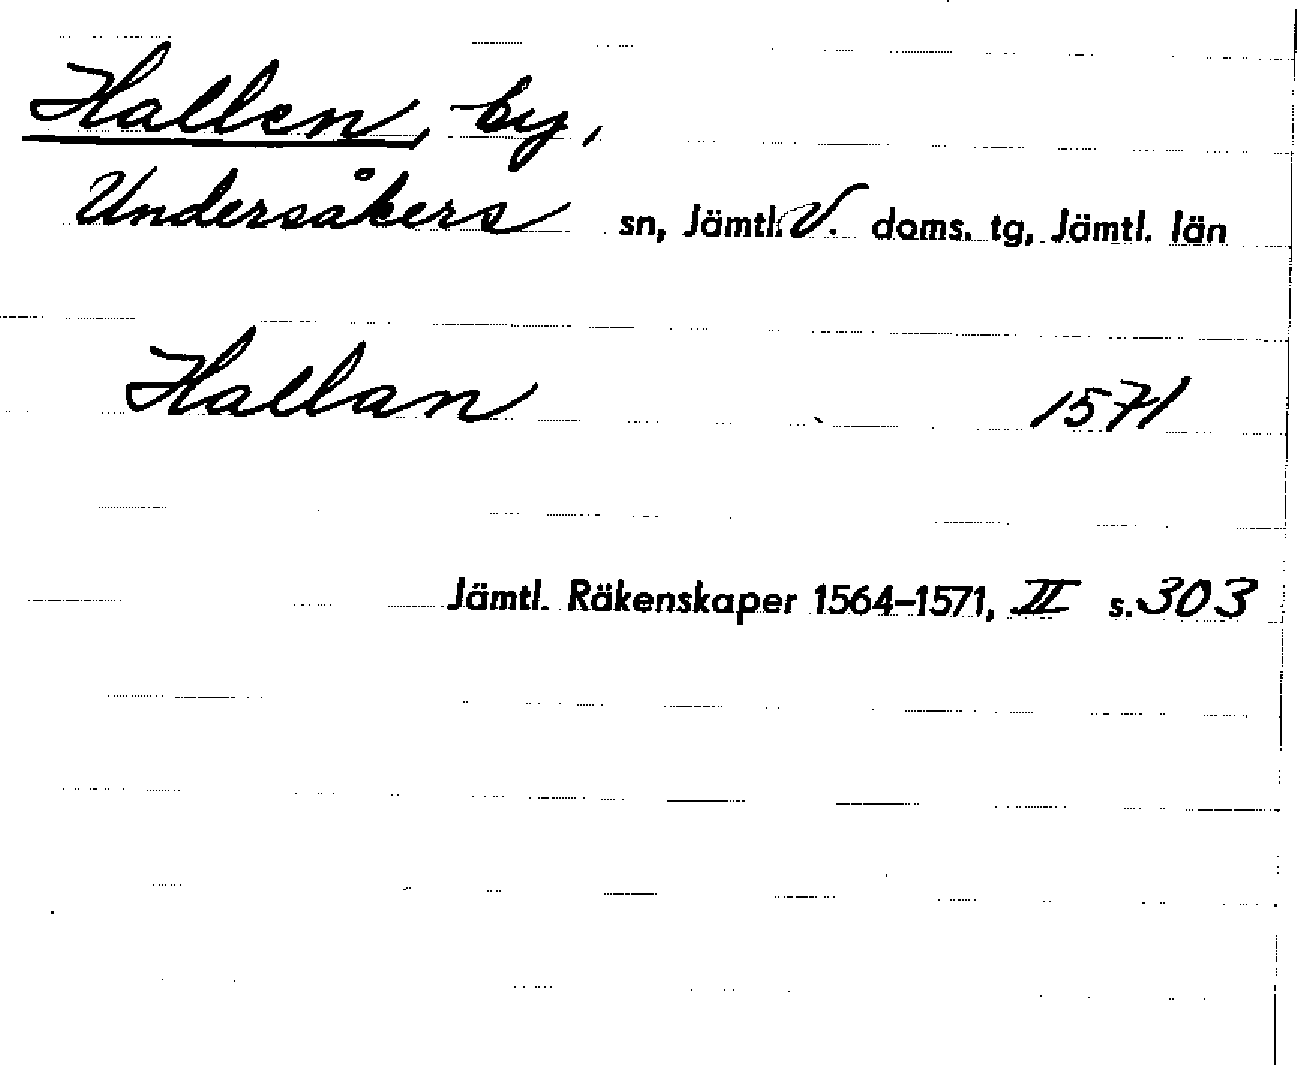 Hallen, by,
Undersåkers sn, Jämtl. V. doms. tg, Jämtl. län
Hallan 1571
Jämtl. Räkenskaper 1564–1571, II s. 303